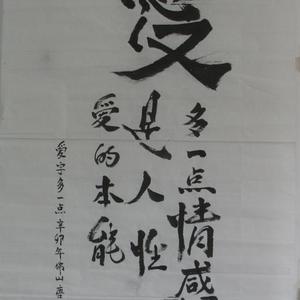 愛
多一点情感
是人性
愛的本能
爱字多一点辛卯年佛山